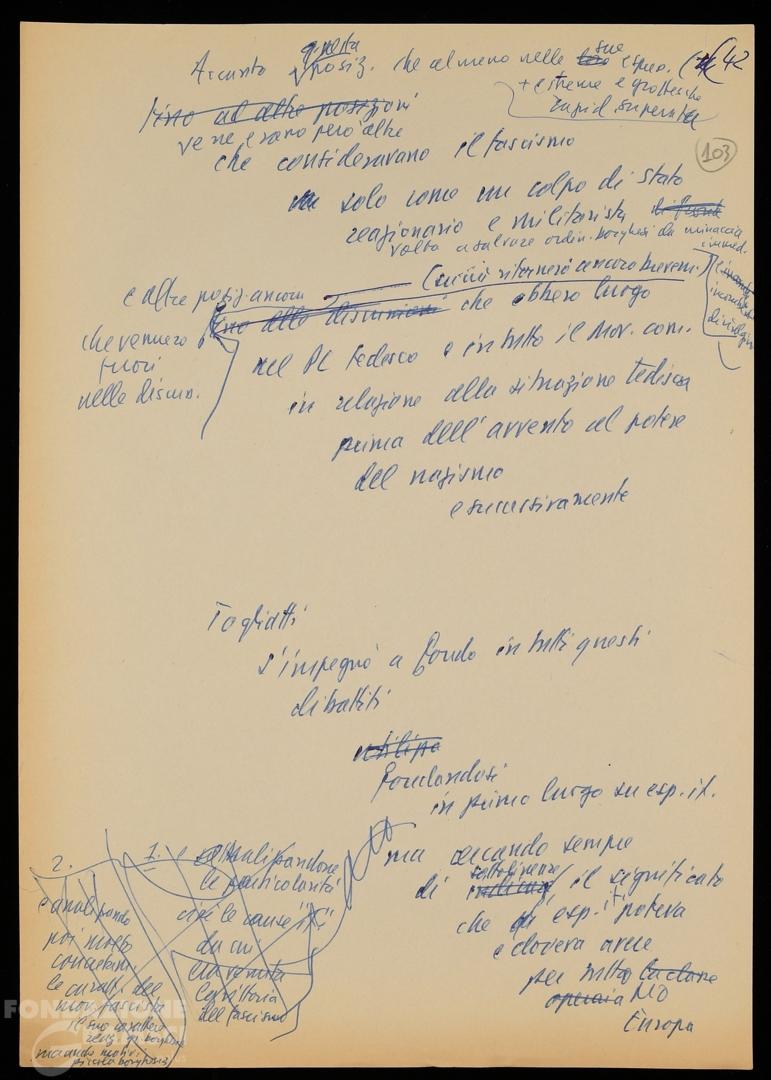 Accanto questa posiz. che almeno nelle sue espres. 42
+ estreme e grottesche
rapid. superata
fino ad altre posizioni
ve ne erano però altre
che consideravano il fascismo
103
solo come un colpo di stato
reazionario e militarista
volto a salvare ordin. borghesi da minaccia
immed.
(su ciò ritornerò ancora brevem.)
e altre posiz. ancora
che ebbero luogo
che vennero
fuori
nelle discuss.
nel PC tedesco e in tutto il Mov. com.
in relazione alla situazione tedesca
prima dell'avvento al potere
del nazismo
e successivamente
Togliatti
s'impegnò a fondo in tutti questi
dibattiti
utilizza
fondandosi
in primo luogo su esp. it.
ma cercando sempre
di sottolineare il significato
che esp. it. poteva
e doveva avere
per tutto la classe
operaia MO
Europa
1. e
le particolarità
cioè le cause
da cui
era venuta
la vittoria
del fascismo
2.
e analizzando
poi molto
concretam.
le caratt. del
mov. fascista
il suo carattere
reaz. gr. borghese
piccola borghesia
FONDAZIONE